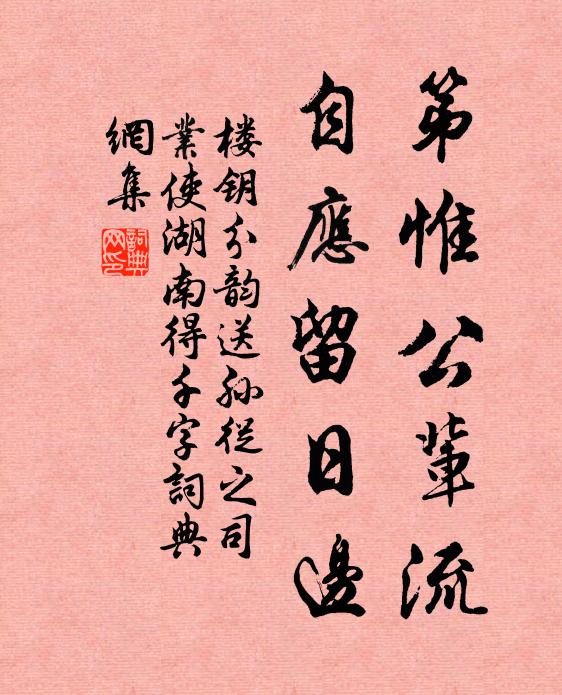 第惟公輩流
自應留日邊
楼钥分韵送孙從之司
業使湖南得千字詞典
網集
詞典
网印